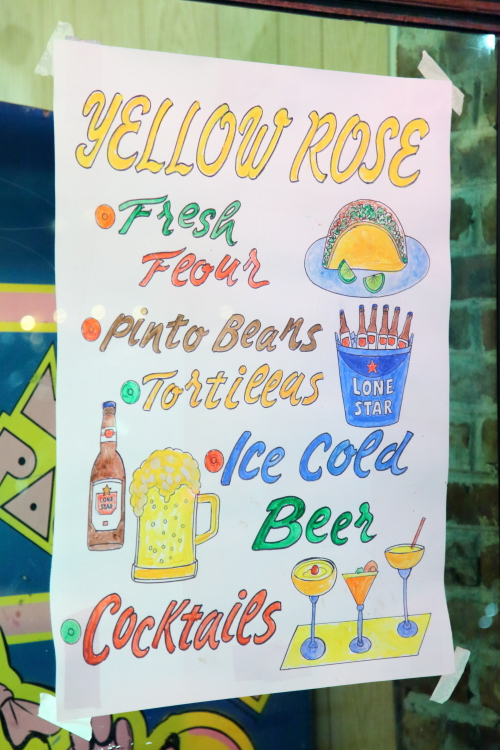 YELLOW ROSE
Fresh
Flour
Pinto Beans
Tortillas
LONE
STAR
Ice Cold
LONE
STAR
Beer
Cocktails